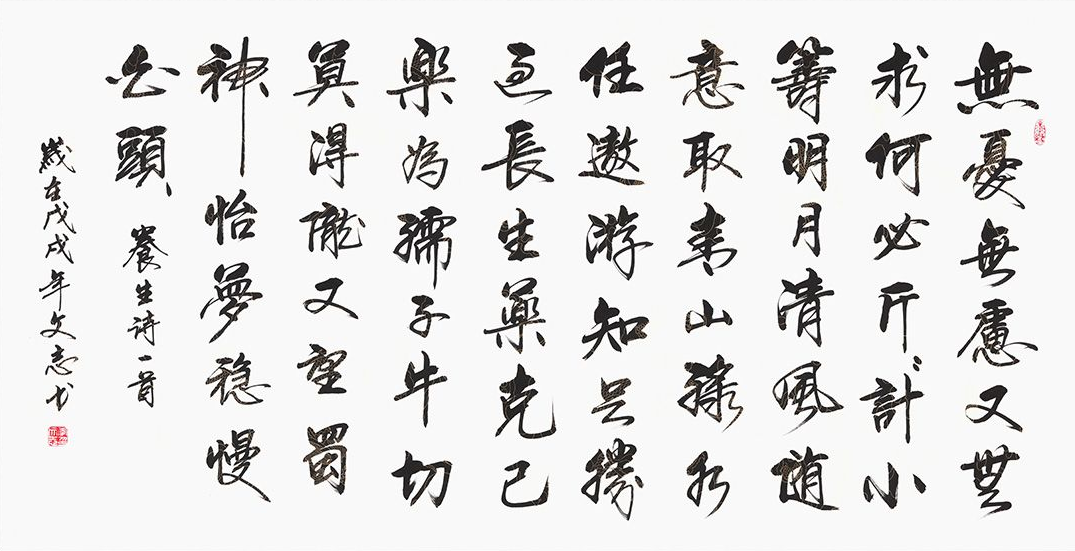 無憂無慮又無
求何必斤〻計小
籌明月清風随
意取青山綠水
任遨游知足勝
過長生藥克己
樂為孺子牛切
莫得隴又望蜀
神怡夢穩慢
白頭 養生诗一首
歲在戊戌年文志书